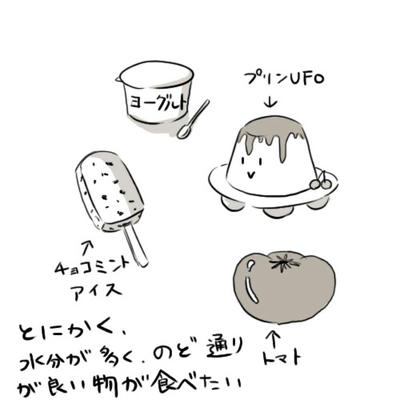 ヨーグルト
プリンUFO
チョコミント
アイス
トマト
とにかく、
水分が多く、のど通り
が良い物が食べたい